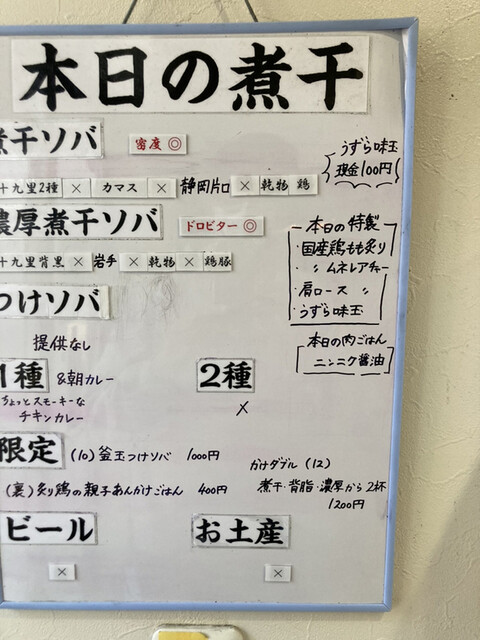 本日の煮干
煮干ソバ 密度◎
十九里2種 × カマス × 静岡片口 × 乾物 鶏
うずら味玉
現金100円
濃厚煮干ソバ ドロビター◎
十九里背黒 × 岩手 × 乾物 × 鶏豚
本日の特製
国産鶏もも炙り
〃 ムネレアチャー
肩ロース 〃
うずら味玉
つけソバ
提供なし
本日の肉ごはん
ニンニク醤油
1種 &朝カレー 2種
ちょっとスモーキーな
チキンカレー
×
限定 (10) 釜玉つけソバ 1000円
かけダブル (12)
煮干・背脂・濃厚から2杯
1200円
(裏) 炙り鶏の親子あんかけごはん 400円
ビール お土産
× ×